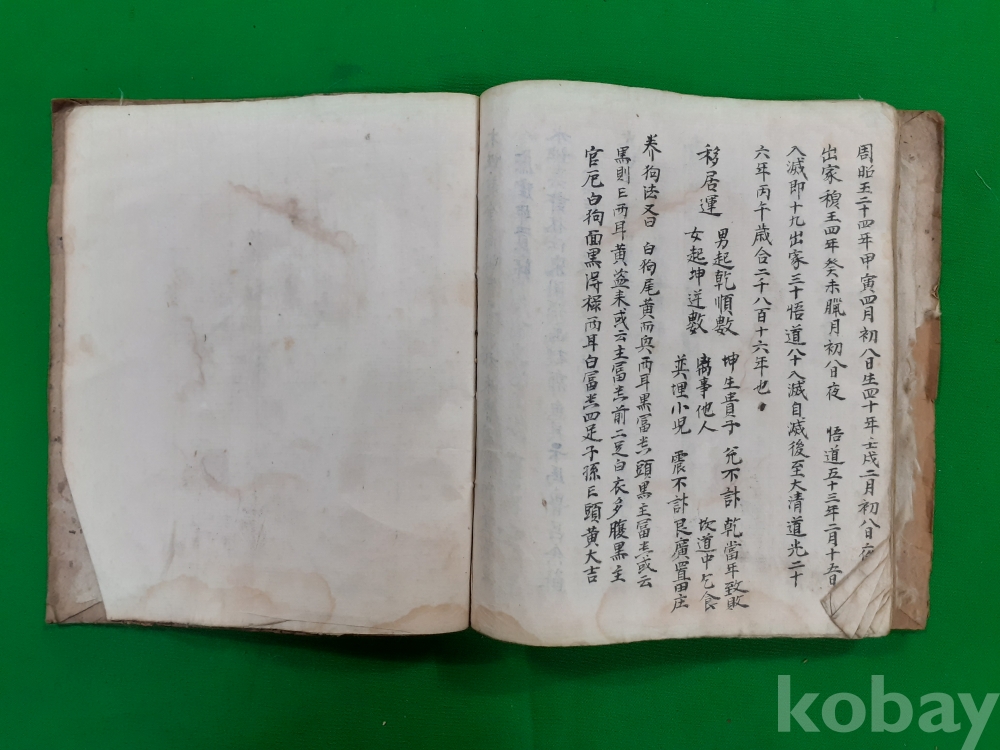 周昭王二十四年甲寅四月初八日生四十年壬戌二月初八日夜
出家穆王四年癸未臘月初八日夜 悟道五十三年二月十五日
入滅即十九出家三十悟道八十入滅自滅後至大清道光二十
六年丙午歲合二千八百十六年也
移居運 男起乾順數 坤生貴子 兌不計 乾當年致敗
女起坤逆數 离事他人 坎道中乞食
英埋小児 震不計 艮廣置田庄
养狗法又曰 白狗尾黄而與两耳黒冨吉頭黒主冨吉或云
黒則亡两耳黄盗来或云主冨吉前二足白衣多腹黒主
官厄白狗面黒得祿两耳白冨吉四足子孫亡頭黄大吉
kobay